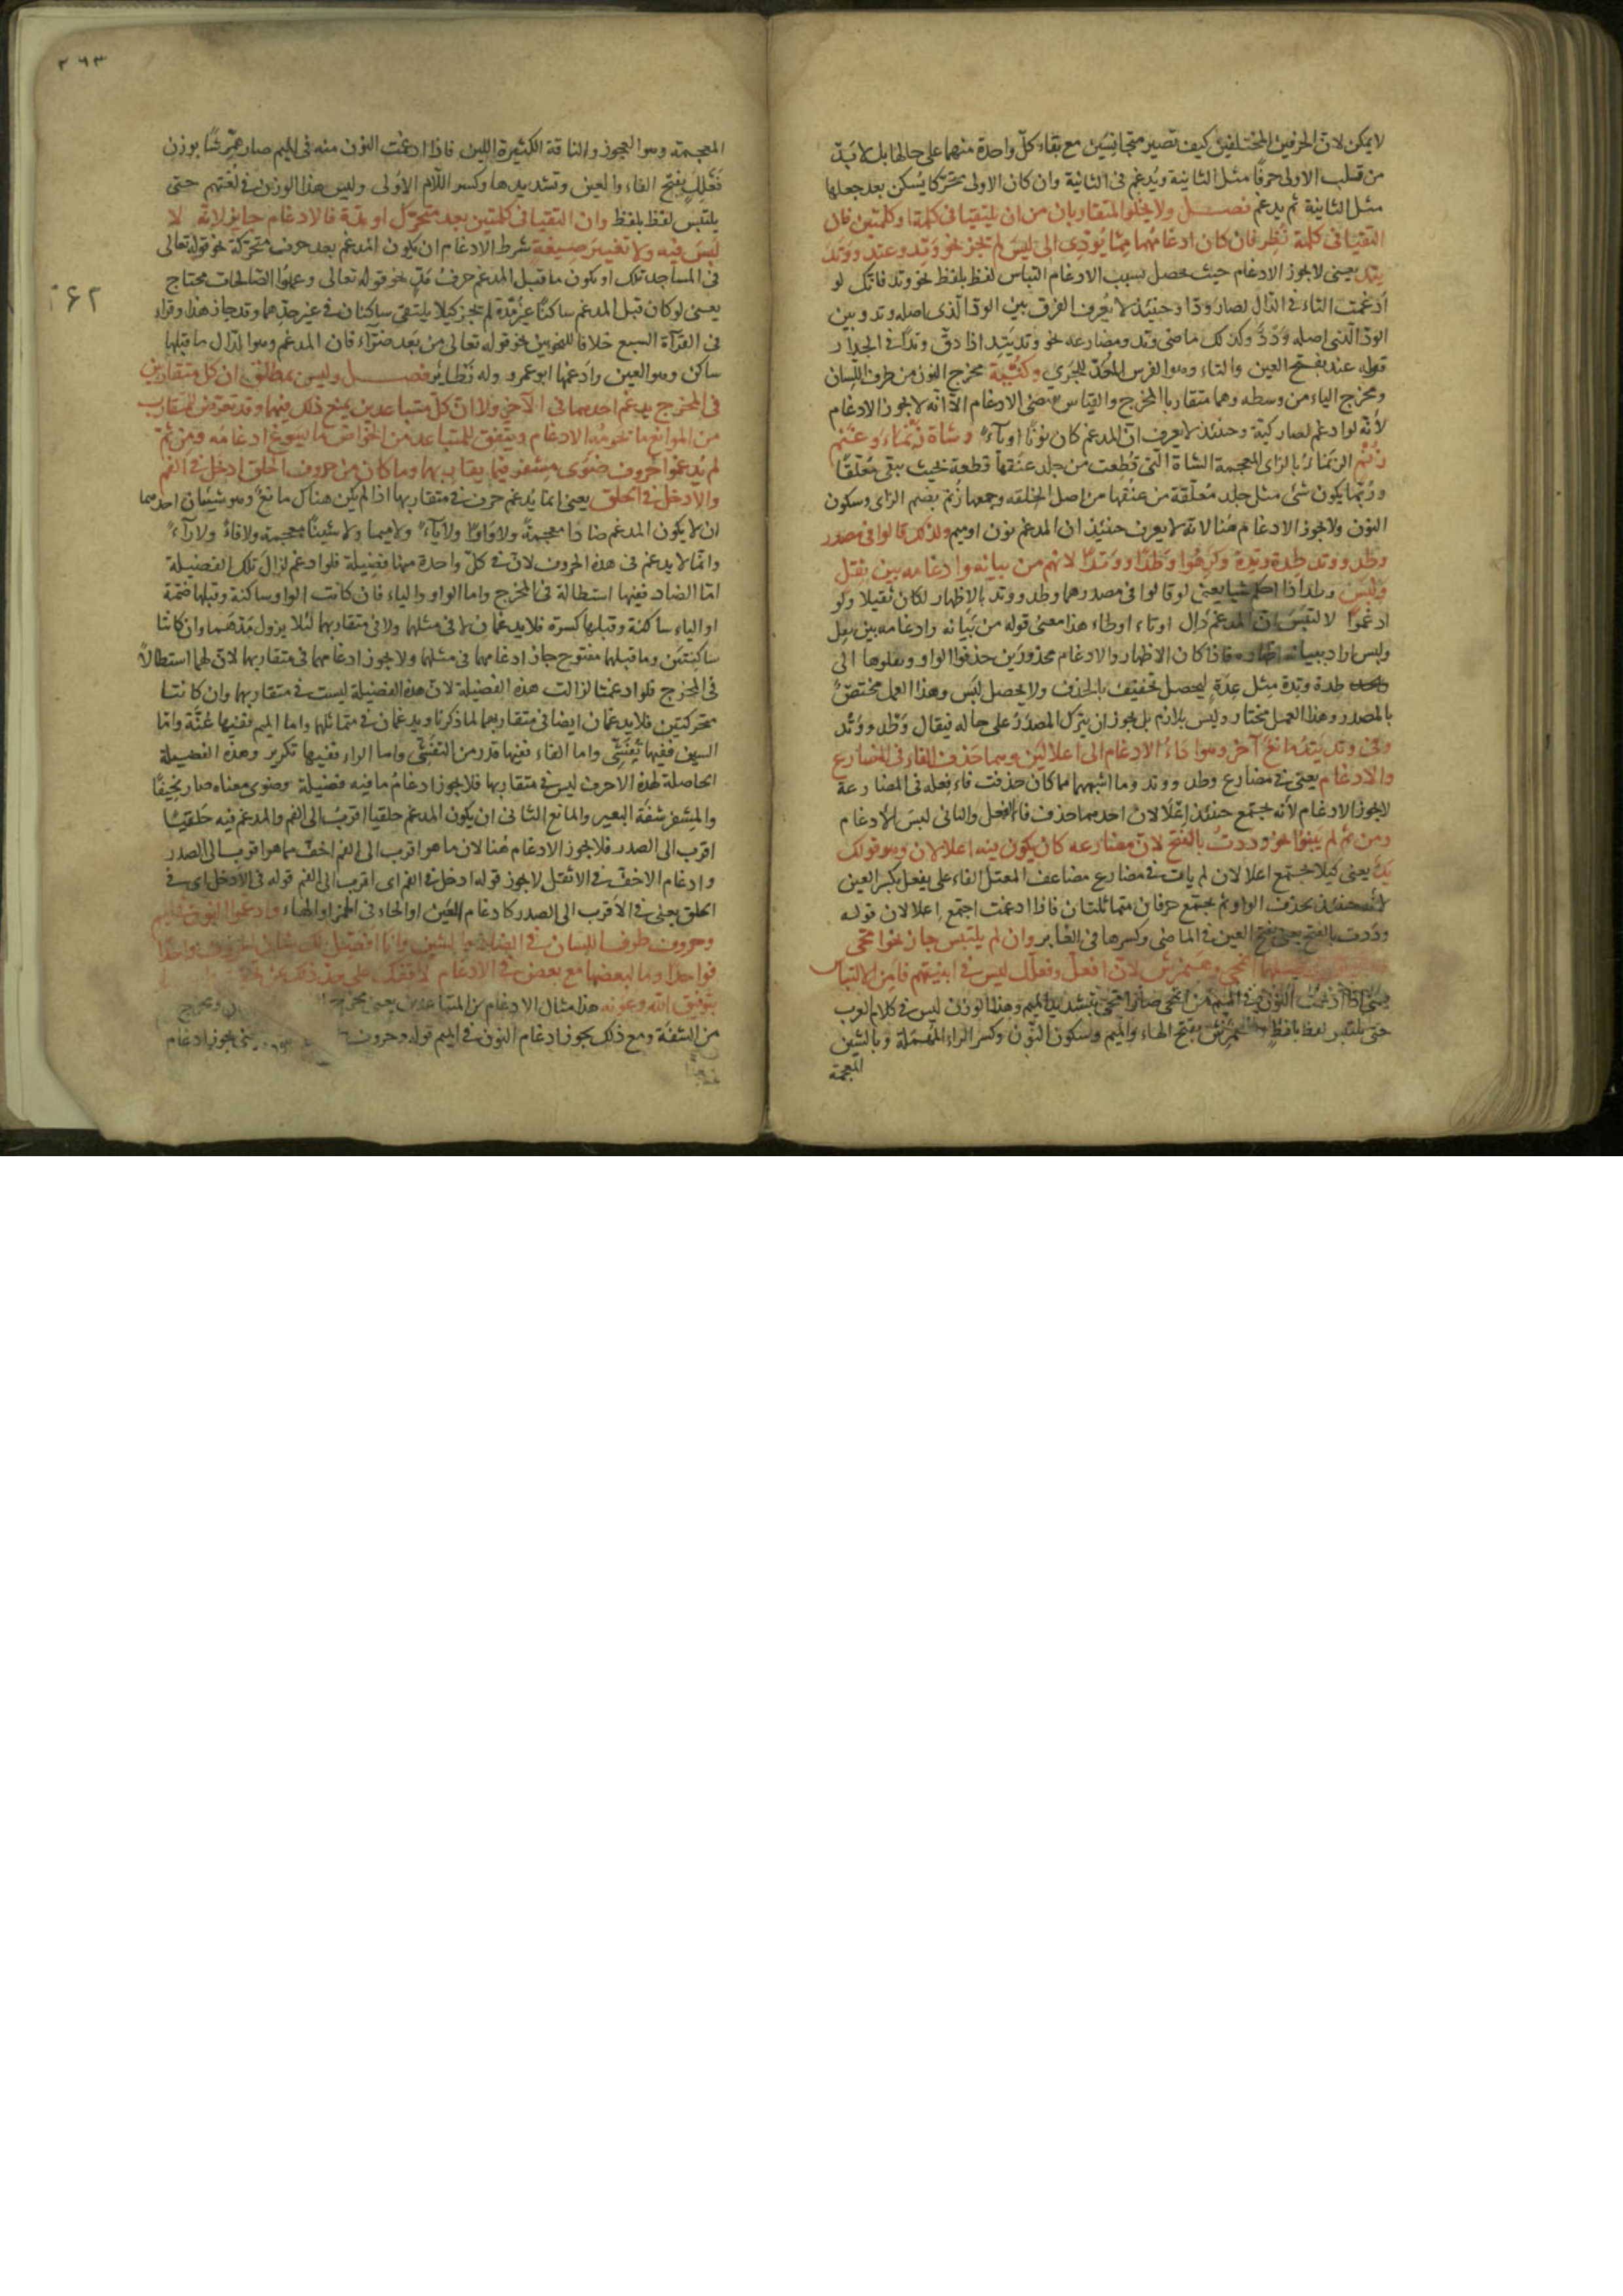 لا يمكن لان الحرفين المختلفين كيف تصير متجانسين مع بقاء كل واحدة منهما على حالها بل لا بد
من قلب الاولى حرفا مثل الثانية ويدغم فى الثانية وان كان الاولى متحركا يسكن بعد جعلها
مثل الثانية ثم يدغم فصل ولا يخلو المتقاربان من ان يلتقيا فى كلمة او كلمتين فان
التقيا فى كلمة نظر فان كان ادغامهما مما يؤدى الى لبس لم تجز نحو وتد وعتد ووتد
يتد يعنى لا يجوز الادغام حيث يحصل بسبب الادغام التباس لفظ بلفظ نحو وتد فانك لو
ادغمت التاء فى الدال لصار ودا وحينئذ لا يعرف الفرق بين الود الذى اصله وتد وبين
الود الذى اصله ودد وكذلك ماضى وتد ومضارعه نحو وتد يتد اذا دق وتدا فى الجدار
قوله عتد بفتح العين والتاء وهو الفرس المعد للجرى وكنية مخرج النون من طرف اللسان
ومخرج الياء من وسطه وهما متقاربا المخرج والقياس يقتضى الادغام الا انه لا يجوز الادغام
لانه لو ادغم لصار كية وحينئذ لا يعرف ان المدغم كان نونا او ياء وشاة زنماء وغنم
زنم الزنماء بالزاى المعجمة الشاة التى قطعت من جلد عنقها قطعة بحيث يبقى معلقا
وربما يكون شئ مثل جلد معلقة من عنقها من اصل الخلقه وجمعها زنم بضم الزاى وسكون
النون ولا يجوز الادغام هنا لانه لا يعرف حينئذ ان المدغم نون او ميم ولذلك قالوا فى مصدر
وطد ووتد طدة وتدة وكرهوا وطدا ووتدا لانهم من بيانه وادغامه بين ثقل
ولبس وطد اذا يعنى لو قالوا فى مصدرهما وطد ووتد بالاظهار لكان ثقيلا ولو
ادغموا لالتبس ان المدغم دال او تاء او طاء هذا معنى قوله من بيانه وادغامه بين ثقل
ولبس اراد ببيانه اظهاره فاذا كان الاظهار والادغام محذورين حذفوا الواو ونقلوها الى
طدة وتدة مثل عدة ليحصل تخفيف بالحذف ولا يحصل لبس وهذا العمل مختص
بالمصدر وهذا العمل مختار وليس بلازم بل يجوز ان يترك المصدر على حاله فيقال وطد ووتد
وفى وتد يتد مانع آخر وهو اداء الادغام الى اعلالين وهما حذف الفاء فى المضارع
والادغام يعنى فى مضارع وطد ووتد وما اشبههما مما كان حذفت فاء فعله فى المضارعة
لا يجوز الادغام لانه يجتمع حينئذ اعلالان احدهما حذف فاء الفعل والثانى لبس الادغام
ومن ثم لم يبنوا نحو وددت بالفتح لان مضارعه كان يكون فيه اعلالان وهو قولك
يد يعنى كيلا يجتمع اعلالان لم يات فى مضارع مضاعف المعتل الفاء على يفعل بكسر العين
لانه حينئذ يحذف الواو ثم يجتمع حرفان متماثلتان فاذا ادغمت اجتمع اعلالان قوله
وددت بالفتح يعنى بفتح العين فى الماضى وكسرها فى الغابر وان لم يلتبس جاز نحو امحى
واصلهما انمحى وهنمرش لان افعل وفعلل ليس فى ابنيتهم فامن الالتباس
يعنى اذا ادغمت النون فى الميم من انمحى صار امحى بتشديد الميم وهذا الوزن ليس فى كلام العرب
حتى يلتبس لفظ بلفظ بفتح الهاء والميم وسكون النون وكسر الراء المهملة وبالشين
المعجمة
٢٦٣
المعجمة وهو العجوز والناقة الكثيرة اللبن فاذا ادغمت النون منه فى الميم صار همرشا بوزن
فعلل بفتح الفاء والعين وتشديدها وكسر اللام الاولى وليس هذا الوزن فى لغتهم حتى
يلتبس لفظ بلفظ وان التقيا فى كلمتين بعد متحرك او مدة فالادغام جايز لانه لا
لبس فيه ولا تغيير صيغة شرط الادغام ان يكون المدغم بعد حرف متحركة نحو قوله تعالى
فى المساجد تلك او يكون ما قبل المدغم حرف مد نحو قوله تعالى وعملوا الصالحات محتاج
٢٦٢
يعنى لو كان قبل المدغم ساكنا غير مدة لم تجز كيلا يلتقى ساكنان فى غير حدهما وقد جاز هذا وقراء
فى القرآة السبع خلافا للنحويين نحو قوله تعالى من بعد ضراء فان المدغم وهو الدال ما قبلها
ساكن وهو العين وادغمها ابو عمرو وله نظاير فصل وليس بمطلق ان كل متقاربين
فى المخرج يدغم احدهما فى الآخر ولا ان كل متباعدين يمتنع ذلك فيهما وقد تعرض للمتقارب
من الموانع ما تحرمه الادغام ويتفق للمتباعد من الخواص ما يسوغ ادغامه ومن ثم
لم يدغموا حروف ضوى مشفر فيما يقاربها وما كان من حروف الحلق ادخل فى الفم
والادخل فى الحلق يعنى انما يدغم حرف فى متقاربها اذا لم يكن هناك مانع وهو شيئان احدهما
ان لا يكون المدغم ضادا معجمة ولا واوا ولا ياء ولا ميما ولا شينا معجمة ولا فاء ولا راء
وانما لا يدغم فى هذه الحروف لان فى كل واحدة منها فضيلة فلو ادغم لزال تلك الفضيلة
اما الضاد ففيها استطالة فى المخرج واما الواو والياء فان كانت الواو ساكنة وقبلها ضمة
او الياء ساكنة وقبلها كسرة فلا يدغمان لا فى مثلهما ولا فى متقاربهما لئلا يزول مدهما وان كانتا
ساكنتين وما قبلهما مفتوح جاز ادغامهما فى مثلهما ولا يجوز ادغامهما فى متقاربها لان لهما استطالة
فى المخرج فلو ادغمتا لزالت هذه الفضيلة لان هذه الفضيلة ليست فى متقاربها وان كانتا
متحركتين فلا يدغمان ايضا فى متقاربهما لما ذكرنا ويدغمان فى متماثلهما واما الميم ففيها غنة واما
الشين ففيها تفشى واما الفاء ففيها قدر من التفشى واما الراء ففيها تكرير وهذه الفضيلة
الحاصلة لهذه الاحرف ليس فى متقاربها فلا يجوز ادغام ما فيه فضيلة وضوى معناه صار نحيفا
والمشفر شفة البعير والمانع الثانى ان يكون المدغم حلقيا اقرب الى الفم والمدغم فيه حلقيا
اقرب الى الصدر فلا يجوز الادغام هنا لان ما هو اقرب الى الفم اخف مما هو اقرب الى الصدر
وادغام الاخف فى الاثقل لا يجوز قوله ادخل فى الفم اى اقرب الى الفم قوله فى الادخل اى فى
الحلق يعنى فى الاقرب الى الصدر كادغام العين او الحاء فى الهمز او الهاء وادغموا النون فى الميم
وحروف طرف اللسان فى الضاد والشين وانا افصل لك شان الحروف واحدا
فواحدا وما لبعضها مع بعض فى الادغام لاقفك على
بتوفيق الله وعونه هذا مثال الادغام بين المتباعدين يعنى مخرج ومخرج
من الشفة ومع ذلك يجوز ادغام النون فى الميم قوله وحروف يعنى يجوز ادغام